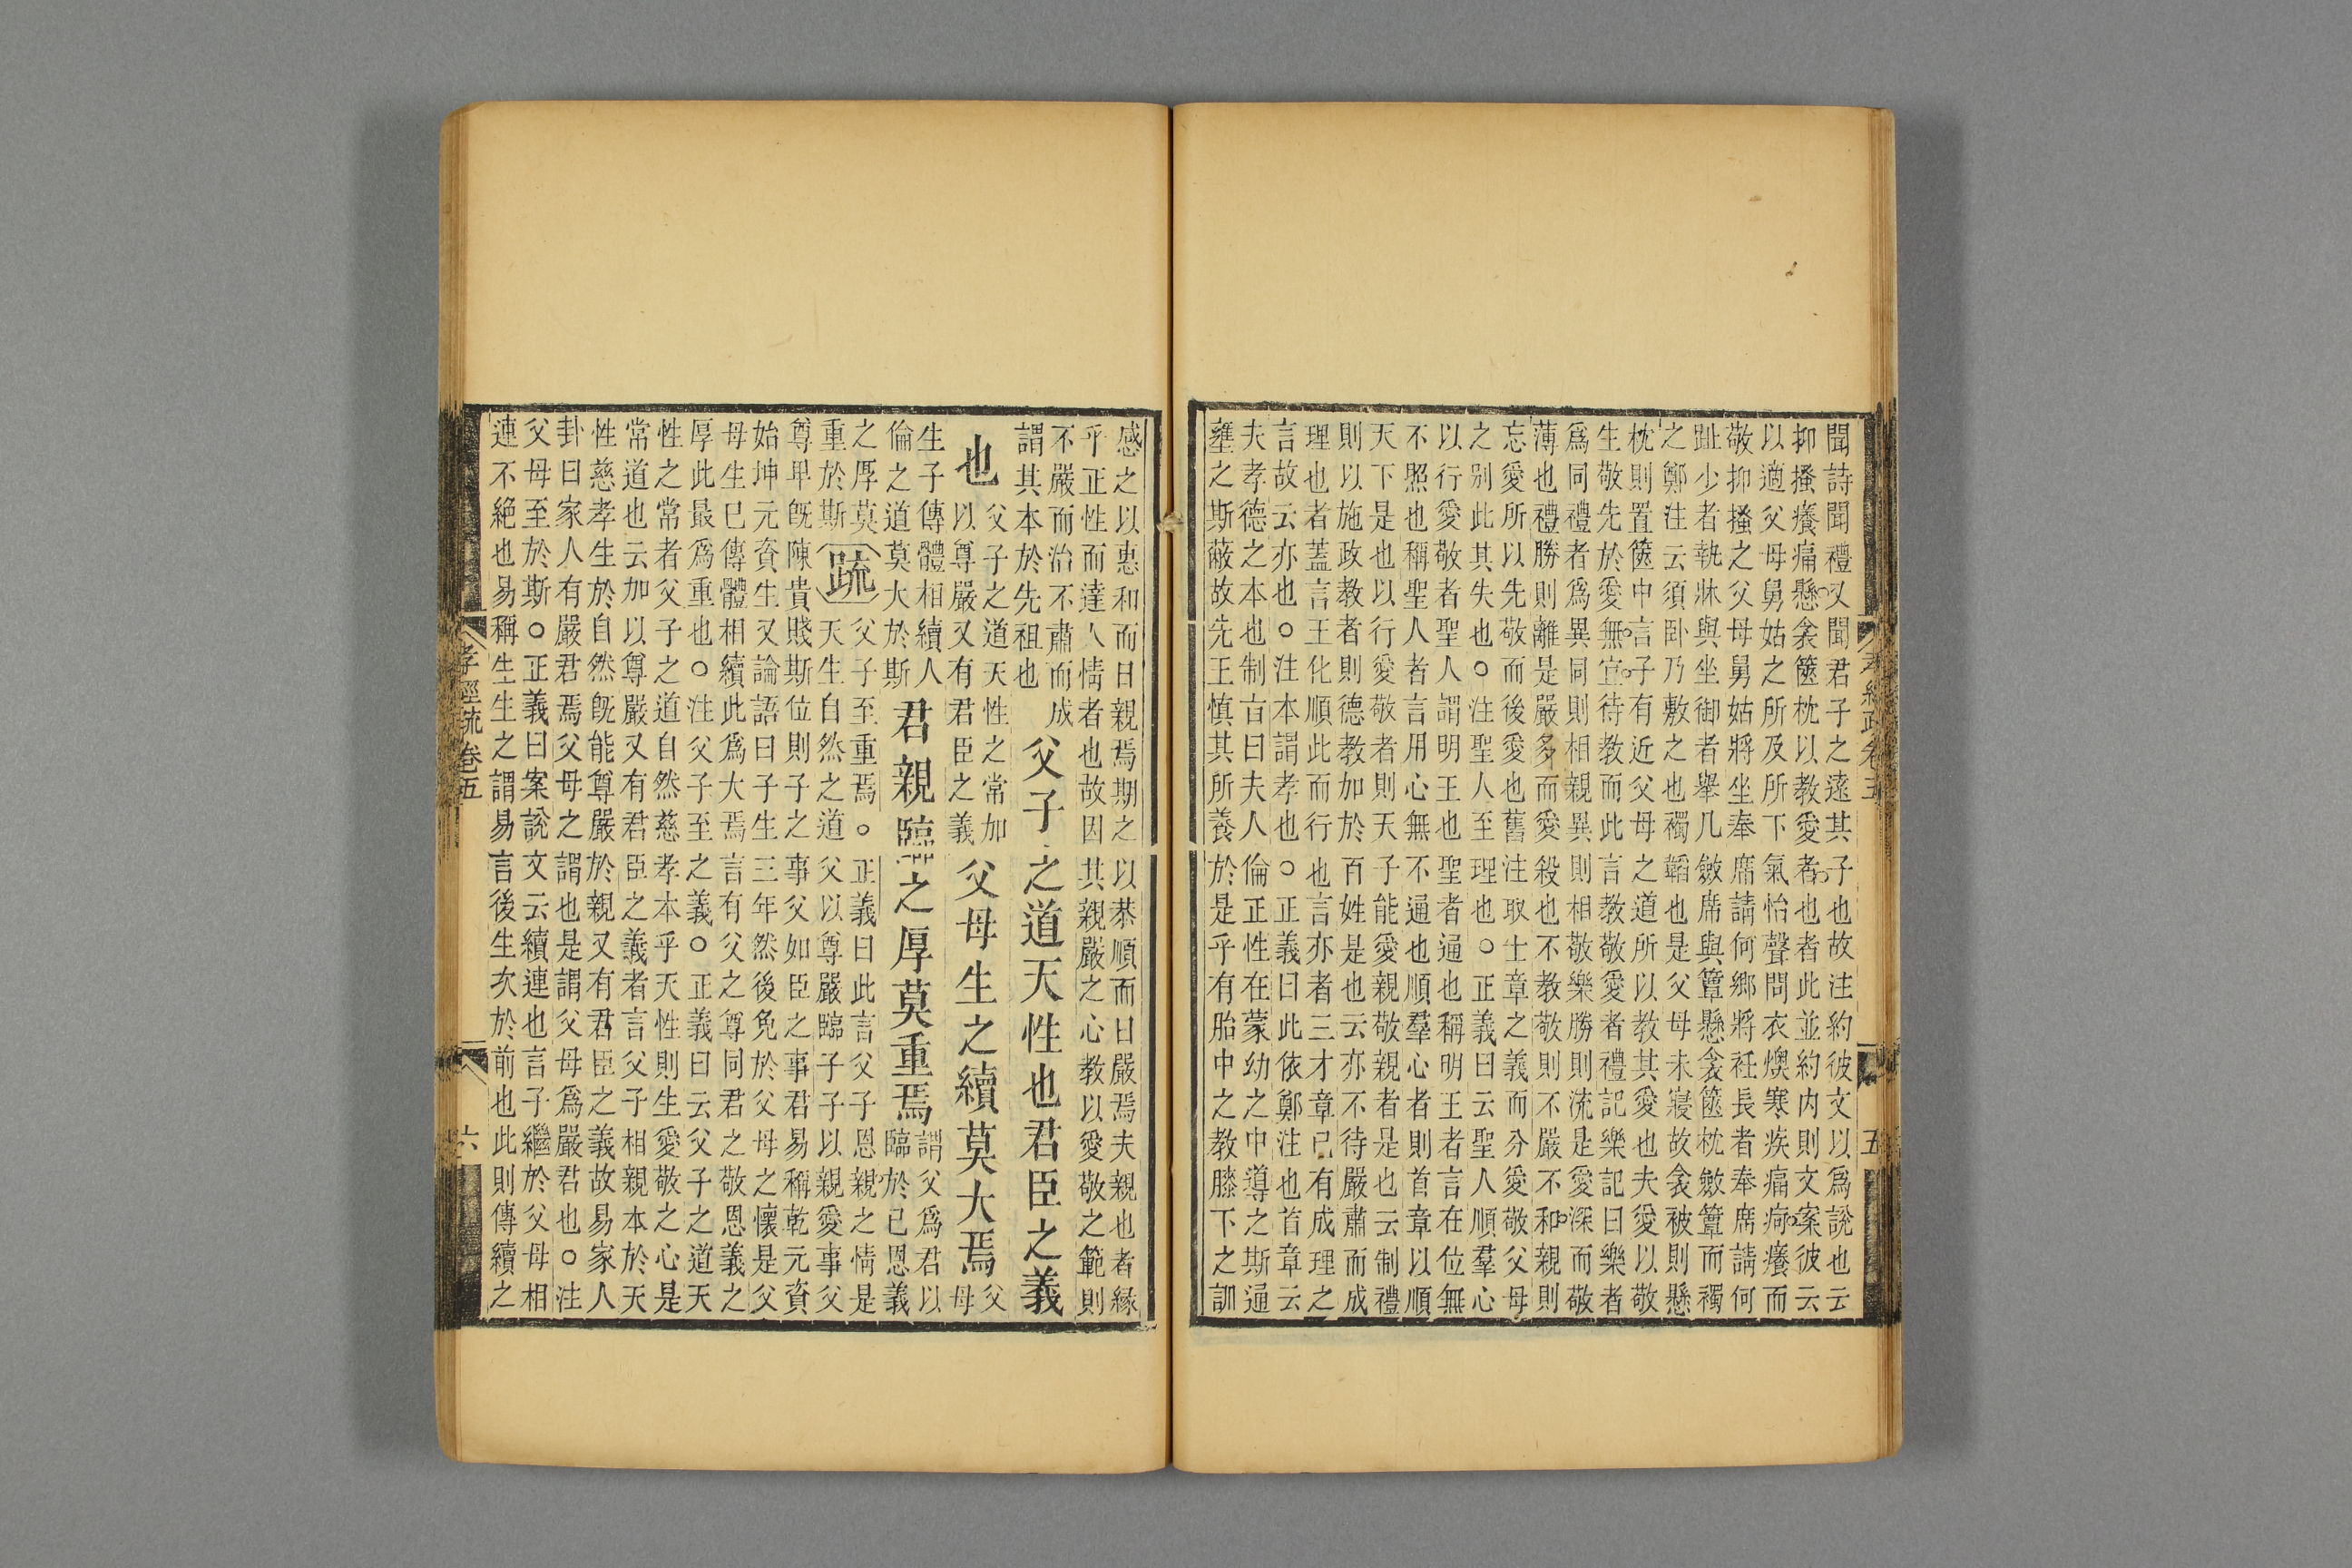 孝經疏卷五
五
聞詩聞禮又聞君子之遠其子也故注約彼文以爲說也云
抑搔癢痛懸衾篋枕以教愛者也者此並約内則文案彼云
以適父母舅姑之所及所下氣怡聲問衣燠寒疾痛疴癢而
敬抑搔之父母舅姑將坐奉席請何鄉將衽長者奉席請何
趾少者執牀與坐御者舉几斂席與簟懸衾篋枕斂簟而襡
之鄭注云須卧乃敷之也襡韜也是父母未寢故衾被則懸
枕則置篋中言子有近父母之道所以教其愛也夫愛以敬
生敬先於愛無宜待教而此言教敬愛者禮記樂記曰樂者
爲同禮者爲異同則相親異則相敬樂勝則流是愛深而敬
薄也禮勝則離是嚴多而愛殺也不教敬則不嚴不和親則
忘愛所以先敬而後愛也舊注取士章之義而分愛敬父母
之别此其失也○注聖人至理也○正義曰云聖人順羣心
以行愛敬者聖人謂明王也聖者通也稱明王者言在位無
不照也稱聖人者言用心無不通也順羣心者則首章以順
天下是也以行愛敬者則天子能愛親敬親者是也云制禮
則以施政教者則德教加於百姓是也云亦不待嚴肅而成
理也者蓋言王化順此而行也言亦者三才章已有成理之
言故云亦也○注本謂孝也○正義曰此依鄭注也首章云
夫孝德之本也制旨曰夫人倫正性在蒙幼之中導之斯通
壅之斯蔽故先王慎其所養於是乎有胎中之教膝下之訓
感之以惠和而日親焉期之以恭順而日嚴焉夫親也者緣
乎正性而達人情者也故因其親嚴之心教以愛敬之範則
不嚴而治不肅而成
謂其本於先祖也
父子之道天性也君臣之義
也
父子之道天性之常加
以尊嚴又有君臣之義
父母生之續莫大焉
父
母
生子傳體相續人
倫之道莫大於斯
君親臨之厚莫重焉
謂父爲君以
臨於已恩義
之厚莫
重於斯
疏
父子至重焉○正義曰此言父子恩親之情是
天生自然之道父以尊嚴臨子子以親愛事父
尊卑既陳貴賤斯位則子之事父如臣之事君易稱乾元資
始坤元資生又論語曰子生三年然後免於父母之懷是父
母生已傳體相續此爲大焉言有父之尊同君之敬恩義之
厚此最爲重也○注父子至之義○正義曰云父子之道天
性之常者父子之道自然慈孝本乎天性則生愛敬之心是
常道也云加以尊嚴又有君臣之義者言父子相親本於天
性慈孝生於自然既能尊嚴於親又有君臣之義故易家人
卦曰家人有嚴君焉父母之謂也是謂父母爲嚴君也○注
父母至於斯○正義曰案說文云續連也言子繼於父母相
連不絶也易稱生生之謂易言後生次於前也此則傳續之
孝經疏卷五
六